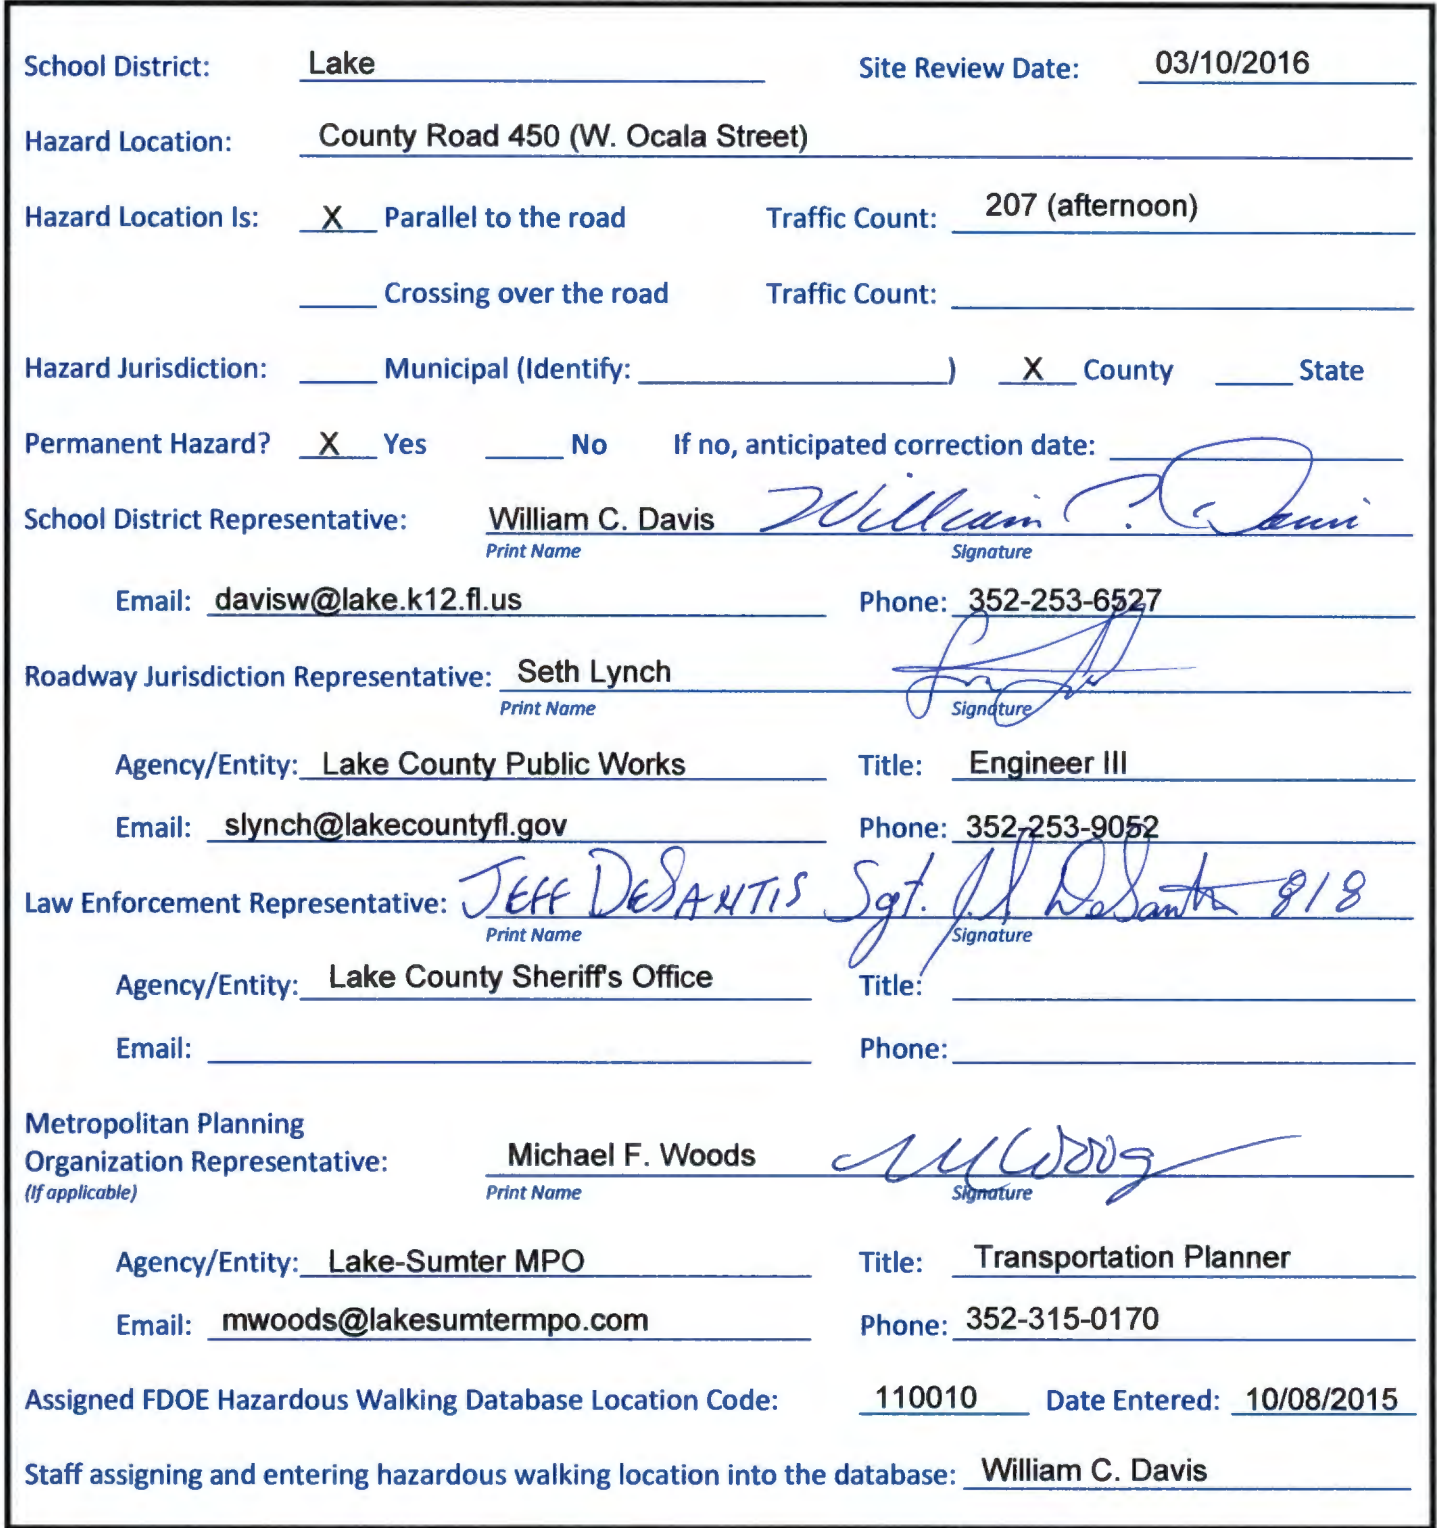 School District: Lake Site Review Date: 03/10/2016
Hazard Location: County Road 450 (W. Ocala Street)
Hazard Location Is: X Parallel to the road Traffic Count: 207 (afternoon)
Crossing over the road Traffic Count:
Hazard Jurisdiction: Municipal (Identify: ) X County State
Permanent Hazard? X Yes No If no, anticipated correction date:
School District Representative: William C. Davis William C. Davis
Print Name Signature
Email: davisw@lake.k12.fl.us Phone: 352-253-6527
Roadway Jurisdiction Representative: Seth Lynch
Print Name Signature
Agency/Entity: Lake County Public Works Title: Engineer III
Email: slynch@lakecountyfl.gov Phone: 352-253-9052
Law Enforcement Representative: JEFF DESANTIS Sgt. J.S DeSantis 818
Print Name Signature
Agency/Entity: Lake County Sheriff's Office Title:
Email: Phone:
Metropolitan Planning
Organization Representative: Michael F. Woods MWoods
(If applicable) Print Name Signature
Agency/Entity: Lake-Sumter MPO Title: Transportation Planner
Email: mwoods@lakesumtermpo.com Phone: 352-315-0170
Assigned FDOE Hazardous Walking Database Location Code: 110010 Date Entered: 10/08/2015
Staff assigning and entering hazardous walking location into the database: William C. Davis